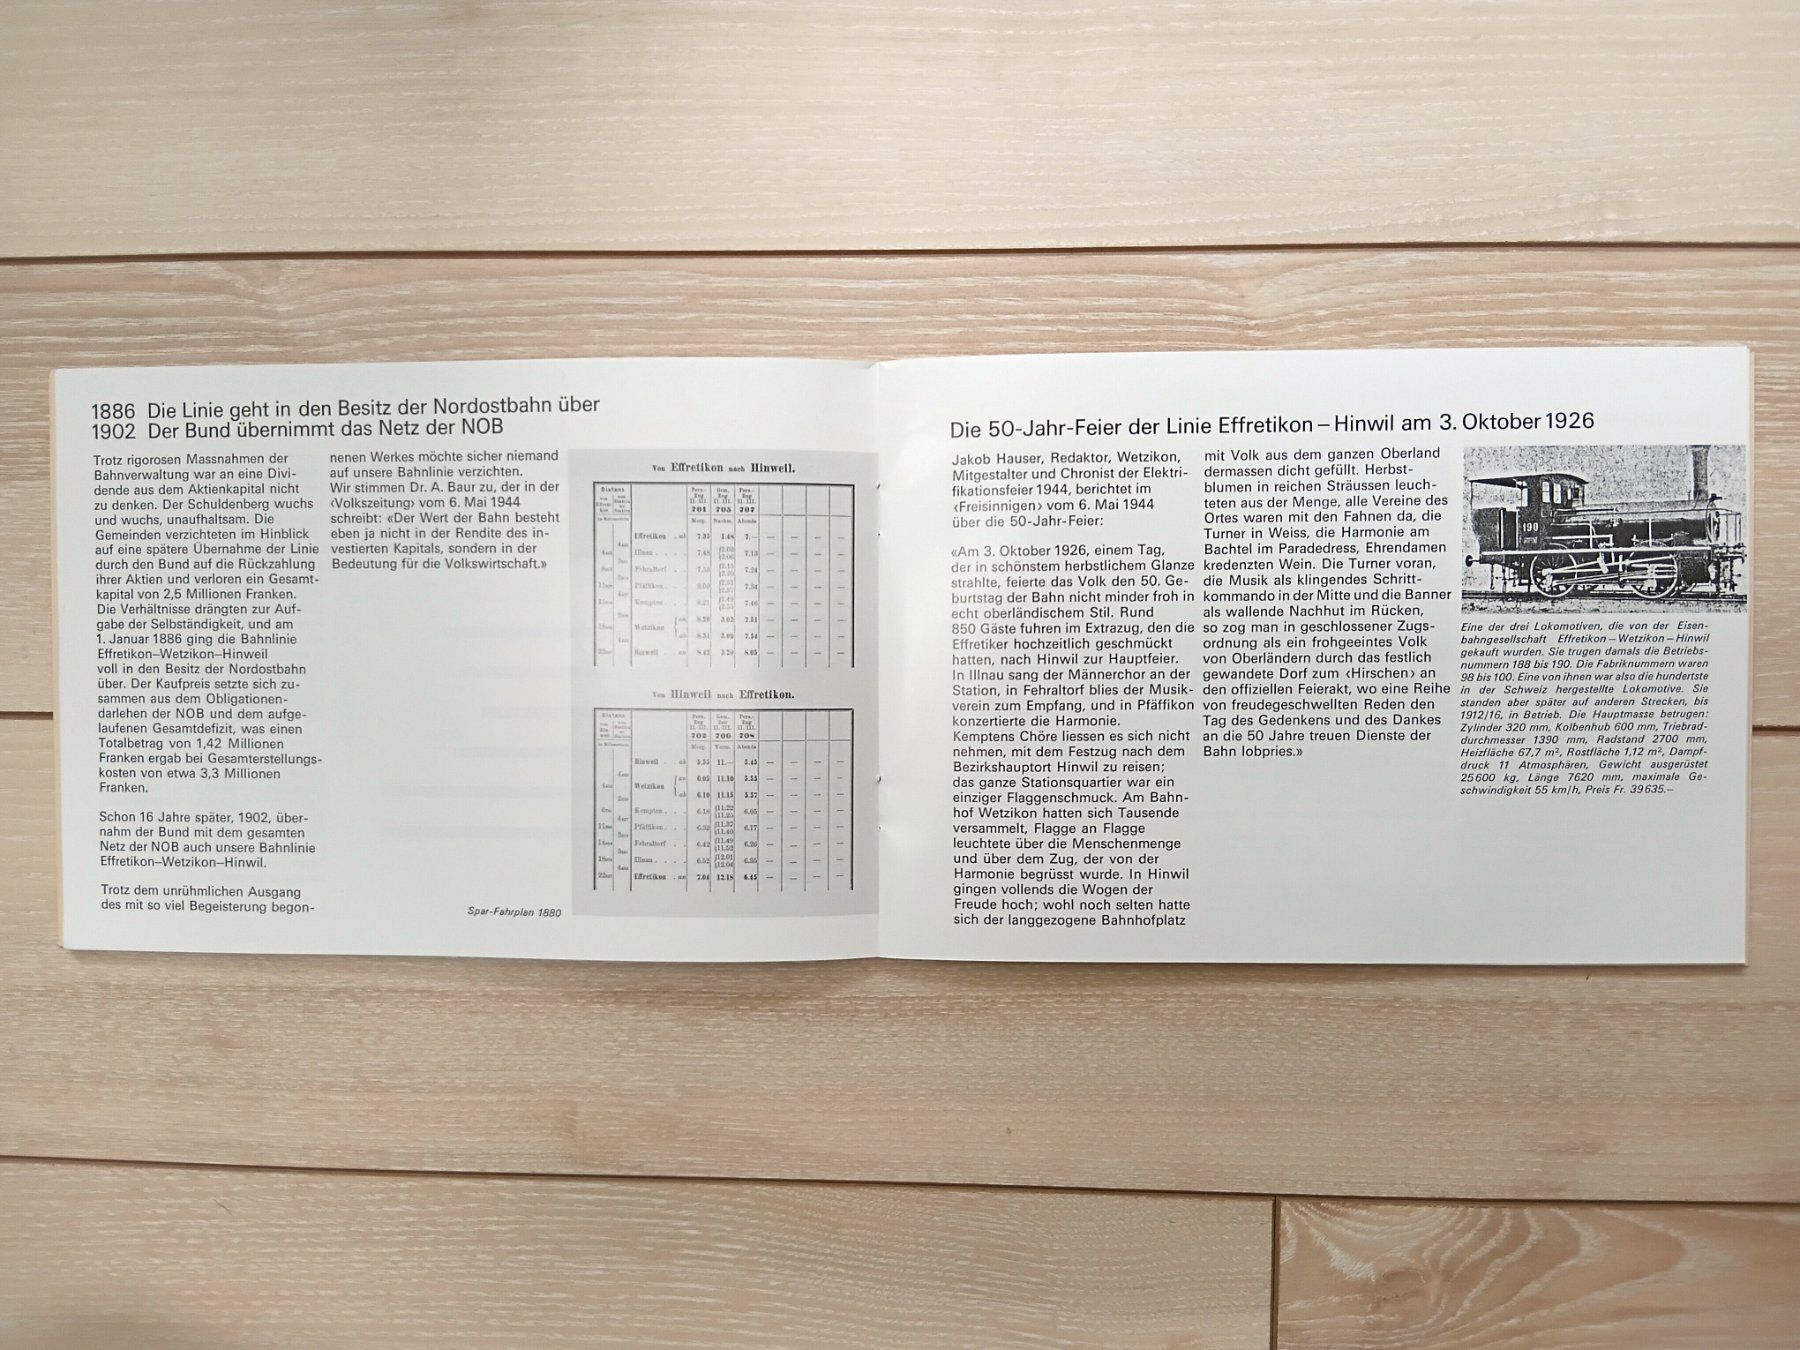 1886 Die Linie geht in den Besitz der Nordostbahn über
1902 Der Bund übernimmt das Netz der NOB
Trotz rigorosen Massnahmen der
Bahnverwaltung war an eine Divi-
dende aus dem Aktienkapital nicht
zu denken. Der Schuldenberg wuchs
und wuchs, unaufhaltsam. Die
Gemeinden verzichteten im Hinblick
auf eine spätere Übernahme der Linie
durch den Bund auf die Rückzahlung
ihrer Aktien und verloren ein Gesamt-
kapital von 2,5 Millionen Franken.
Die Verhältnisse drängten zur Auf-
gabe der Selbständigkeit, und am
1. Januar 1886 ging die Bahnlinie
Effretikon–Wetzikon–Hinweil
voll in den Besitz der Nordostbahn
über. Der Kaufpreis setzte sich zu-
sammen aus dem Obligationen-
darlehen der NOB und dem aufge-
laufenen Gesamtdefizit, was einen
Totalbetrag von 1,42 Millionen
Franken ergab bei Gesamterstellungs-
kosten von etwa 3,3 Millionen
Franken.
Schon 16 Jahre später, 1902, über-
nahm der Bund mit dem gesamten
Netz der NOB auch unsere Bahnlinie
Effretikon–Wetzikon–Hinwil.
Trotz dem unrühmlichen Ausgang
des mit so viel Begeisterung begon-
nenen Werkes möchte sicher niemand
auf unsere Bahnlinie verzichten.
Wir stimmen Dr. A. Baur zu, der in der
‹Volkszeitung› vom 6. Mai 1944
schreibt: «Der Wert der Bahn besteht
eben ja nicht in der Rendite des in-
vestierten Kapitals, sondern in der
Bedeutung für die Volkswirtschaft.»
Von Effretikon nach Hinweil.
Distanz
701 705 707
Morg. Nachm. Abends
Effretikon . ab 7.35 1.48 7.—
Illnau . . . 7.13
Fehraltorf . . 7.24
Pfäffikon . . 7.34
Kempten . . . 7.46
Wetzikon { an 8.26 3.02 7.51
ab 8.31 7.54
Hinweil . an 8.42 3.20 8.05
Von Hinweil nach Effretikon.
Distanz
702 706 708
Morg. Vorm. Abends
Hinweil . ab 5.55 11.— 5.45
Wetzikon { an 6.05 11.10 5.55
ab 6.10 11.15 5.57
Kempten . . . 6.16 11.22 11.25 6.05
Pfäffikon . . 6.32 11.37 11.40 6.17
Fehraltorf . . 6.42 11.49 11.52 6.26
Illnau . . . . 6.52 12.01 12.04 6.35
Effretikon . an 7.04 12.18 6.45
Spar-Fahrplan 1880
Die 50-Jahr-Feier der Linie Effretikon – Hinwil am 3. Oktober 1926
Jakob Hauser, Redaktor, Wetzikon,
Mitgestalter und Chronist der Elektri-
fikationsfeier 1944, berichtet im
‹Freisinnigen› vom 6. Mai 1944
über die 50-Jahr-Feier:
«Am 3. Oktober 1926, einem Tag,
der in schönstem herbstlichem Glanze
strahlte, feierte das Volk den 50. Ge-
burtstag der Bahn nicht minder froh in
echt oberländischem Stil. Rund
850 Gäste fuhren im Extrazug, den die
Effretiker hochzeitlich geschmückt
hatten, nach Hinwil zur Hauptfeier.
In Illnau sang der Männerchor an der
Station, in Fehraltorf blies der Musik-
verein zum Empfang, und in Pfäffikon
konzertierte die Harmonie.
Kemptens Chöre liessen es sich nicht
nehmen, mit dem Festzug nach dem
Bezirkshauptort Hinwil zu reisen;
das ganze Stationsquartier war ein
einziger Flaggenschmuck. Am Bahn-
hof Wetzikon hatten sich Tausende
versammelt, Flagge an Flagge
leuchtete über die Menschenmenge
und über dem Zug, der von der
Harmonie begrüsst wurde. In Hinwil
gingen vollends die Wogen der
Freude hoch; wohl noch selten hatte
sich der langgezogene Bahnhofplatz
mit Volk aus dem ganzen Oberland
dermassen dicht gefüllt. Herbst-
blumen in reichen Sträussen leuch-
teten aus der Menge, alle Vereine des
Ortes waren mit den Fahnen da, die
Turner in Weiss, die Harmonie am
Bachtel im Paradedress, Ehrendamen
kredenzten Wein. Die Turner voran,
die Musik als klingendes Schritt-
kommando in der Mitte und die Banner
als wallende Nachhut im Rücken,
so zog man in geschlossener Zugs-
ordnung als ein frohgeeintes Volk
von Oberländern durch das festlich
gewandete Dorf zum ‹Hirschen› an
den offiziellen Feierakt, wo eine Reihe
von freudegeschwellten Reden den
Tag des Gedenkens und des Dankes
an die 50 Jahre treuen Dienste der
Bahn lobpries.»
190
Eine der drei Lokomotiven, die von der Eisen-
bahngesellschaft Effretikon – Wetzikon – Hinwil
gekauft wurden. Sie trugen damals die Betriebs-
nummern 188 bis 190. Die Fabriknummern waren
98 bis 100. Eine von ihnen war also die hundertste
in der Schweiz hergestellte Lokomotive. Sie
standen aber später auf anderen Strecken, bis
1912/16, in Betrieb. Die Hauptmasse betrugen:
Zylinder 320 mm, Kolbenhub 600 mm, Triebrad-
durchmesser 1390 mm, Radstand 2700 mm,
Heizfläche 67,7 m², Rostfläche 1,12 m², Dampf-
druck 11 Atmosphären, Gewicht ausgerüstet
25 600 kg, Länge 7620 mm, maximale Ge-
schwindigkeit 55 km/h, Preis Fr. 39 635.–